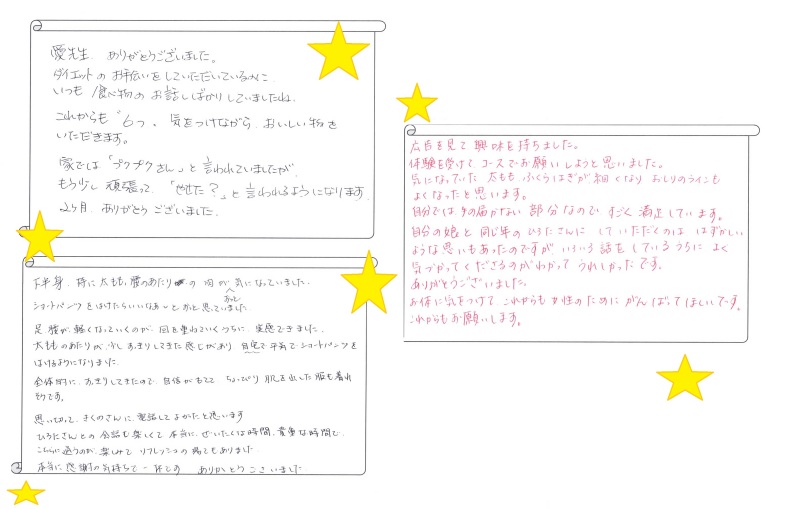 愛先生、ありがとうございました。
ダイエットのお手伝いをしていただいているのに
いつも食べ物のお話しばかりしていましたね。
これからも 6つ、気をつけながら、おいしい物を
いただきます。
家では「プクプクさん」と言われていましたが
もう少し頑張って、「やせた?」と言われるようになります
2ヶ月、ありがとうございました。
下半身、特に太もも、腰のあたりの肉が気になっていました。
ショートパンツをはけたらいいなぁとずっと思っていました
足腰が軽くなっていくのが、回を重ねていくうちに、実感できました。
太もものあたりが、少しすっきりしてきた感じがあり 自宅で平気でショートパンツを
はけるようになりました。
全体的に、すっきりしてきたので、自信がもてて ちょっぴり 肌を出した服も着れ
そうです。
思い切って、さくのさんに、電話して よかったと思います
ひろたさんとの会話も楽しくて 本当に、ぜいたくな時間、貴重な時間で、
こちらに通うのが、楽しみで リフレッシュの場でもありました
本当に感謝の気持ちで一杯です ありがとうございました
広告を見て興味を持ちました。
体験を受けてコースでお願いしようと思いました。
気になっていた太もも、ふくらはぎが細くなり おしりのラインも
よくなったと思います。
自分では手の届かない部分なので すごく満足しています。
自分の娘と同じ年のひろたさんに していただくのは はずかしい
ような思いもあったのですが、いろいろ話をしているうちに よく
気づかってくださるのがわかって うれしかったです。
ありがとうございました。
お体に気をつけて これからも女性のために がんばってほしいです。
これからもお願いします。